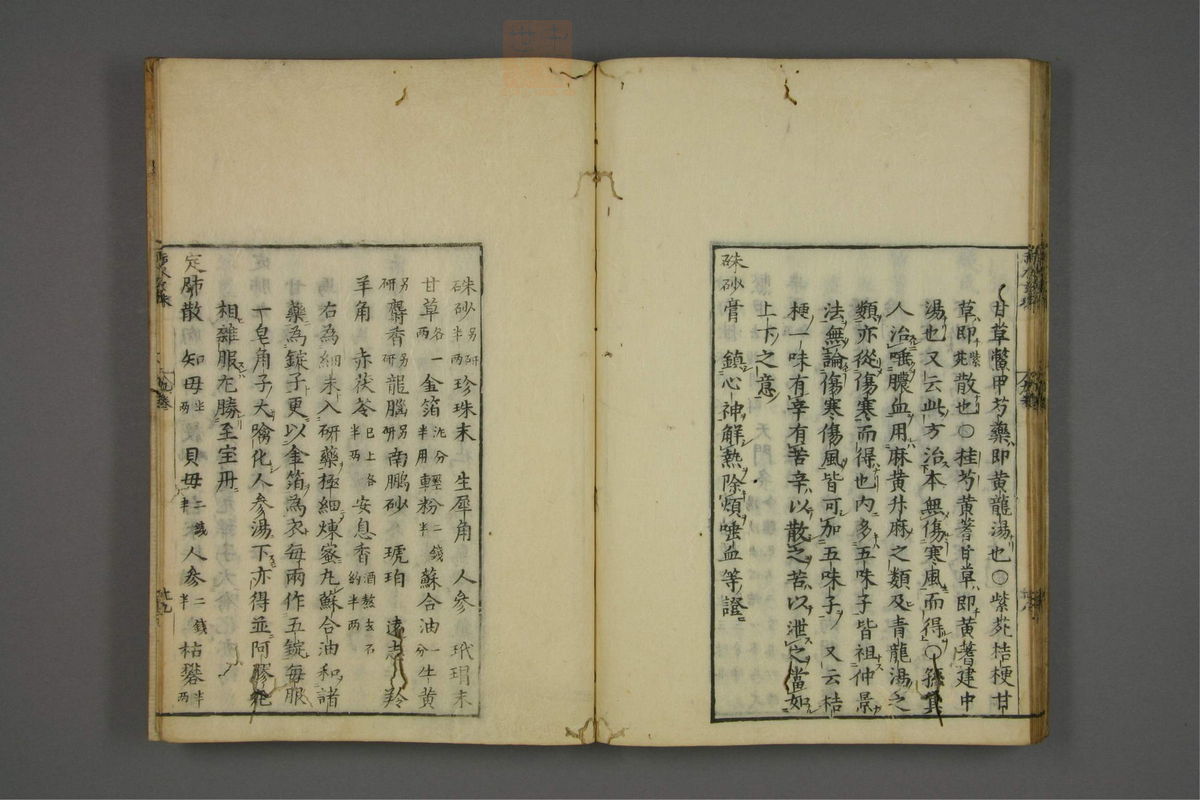 甘草鱉甲芍藥即黄龍湯也〇紫菀桔梗甘
草即紫菀散也〇桂芍黄蓍甘草即黄蓍建中
湯也又云此方治本無傷寒風而得〇
人治唾膿血用麻黄升麻之類及青龍湯之
類亦從傷寒而得也内多五味子皆祖仲景
法無論傷寒傷風皆可加五味子又云桔
梗一味有辛有苦辛以散之苦以泄之當如
上下之意
硃砂膏 鎮心神解熱除煩唾血等證
硃砂另研半两 珍珠末 生犀角 人参 玳瑁末
甘草各一两 金箔泥分半用 輕粉二錢半 蘇合油一分 牛黄
研 麝香另研 龍腦另研 南鵬砂 琥珀 遠志 羚
羊角 赤茯苓已上各半两 安息香酒熬去石約半两
右為細末入研藥極細煉蜜丸蘇合油和諸
藥為錠子更以金箔為衣每兩作五錠每服
一皂角子大噙化人参湯下亦得並阿膠花
相雜服尤勝至宝丹
定肺散 知母 貝母二錢半 人参二錢半 枯礬半两